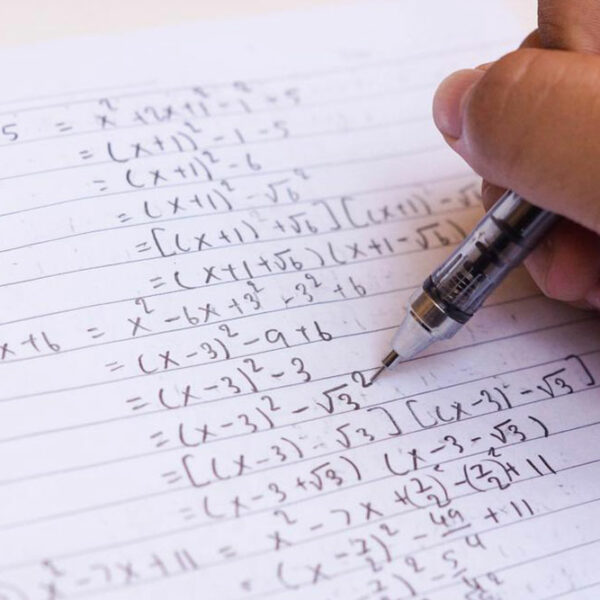 5 = x² + 2x + 1² - 1² - 5
= (x+1)² - 1 - 5
= (x+1)² - 6
= (x+1)² - √6²
= [(x+1) + √6] [(x+1) - √6
= (x+1+√6) (x+1-√6)
x+6 = x² - 6x + 3² - 3² + 6
= (x-3)² - 9 + 6
= (x-3)² - 3
= (x-3)² - √3²
= [(x-3) - √3] [(x-3) - √3]
= (x-3+√3) (x-3-√3)
x² - 7x + 11 = x² - 7x + (7/2)² - (7/2)² + 11
(x - 7/2)² - 49/4 + 11